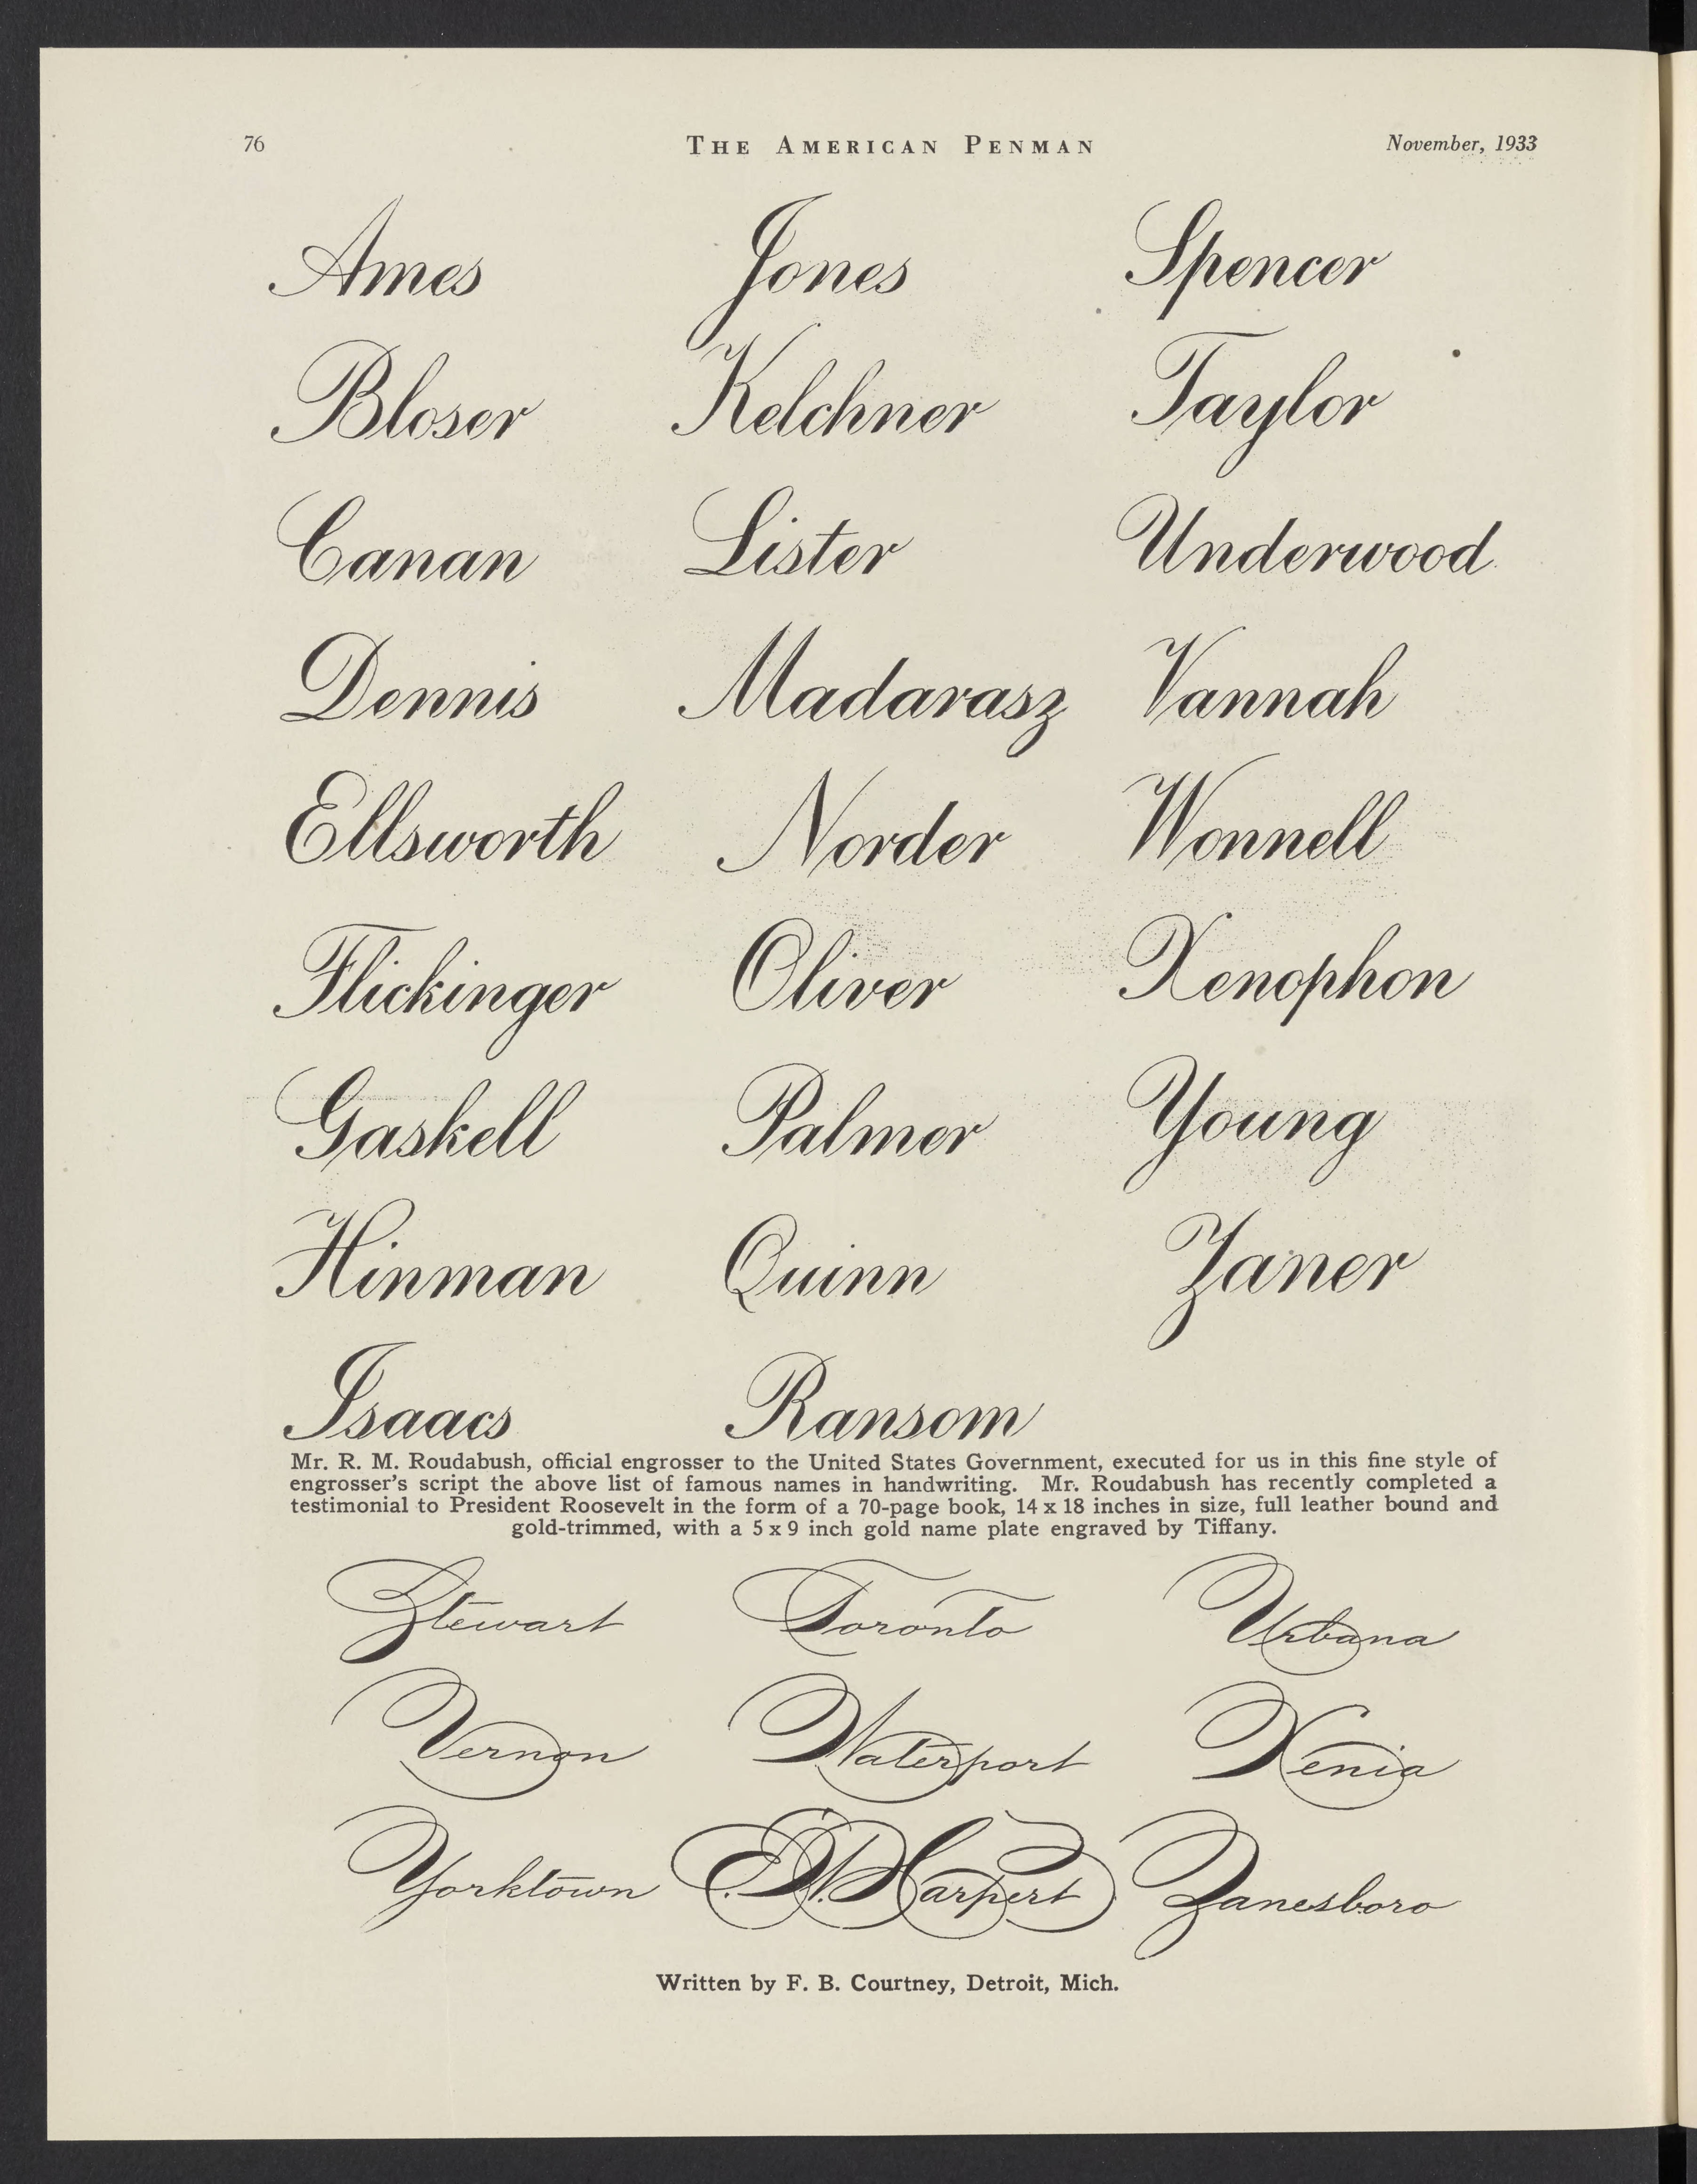 76 THE AMERICAN PENMAN November, 1933
Ames Jones Spencer
Bloser Kelchner Taylor
Canan Lister Underwood
Dennis Madarasz Vannah
Ellsworth Norder Wonnell
Flickinger Oliver Xenophon
Gaskell Palmer Young
Hinman Quinn Zaner
Isaacs Ransom
Mr. R. M. Roudabush, official engrosser to the United States Government, executed for us in this fine style of
engrosser's script the above list of famous names in handwriting. Mr. Roudabush has recently completed a
testimonial to President Roosevelt in the form of a 70-page book, 14 x 18 inches in size, full leather bound and
gold-trimmed, with a 5 x 9 inch gold name plate engraved by Tiffany.
Stewart Toronto Urbana
Vernon Waterport Xenia
Yorktown Harpert Zanesboro
Written by F. B. Courtney, Detroit, Mich.